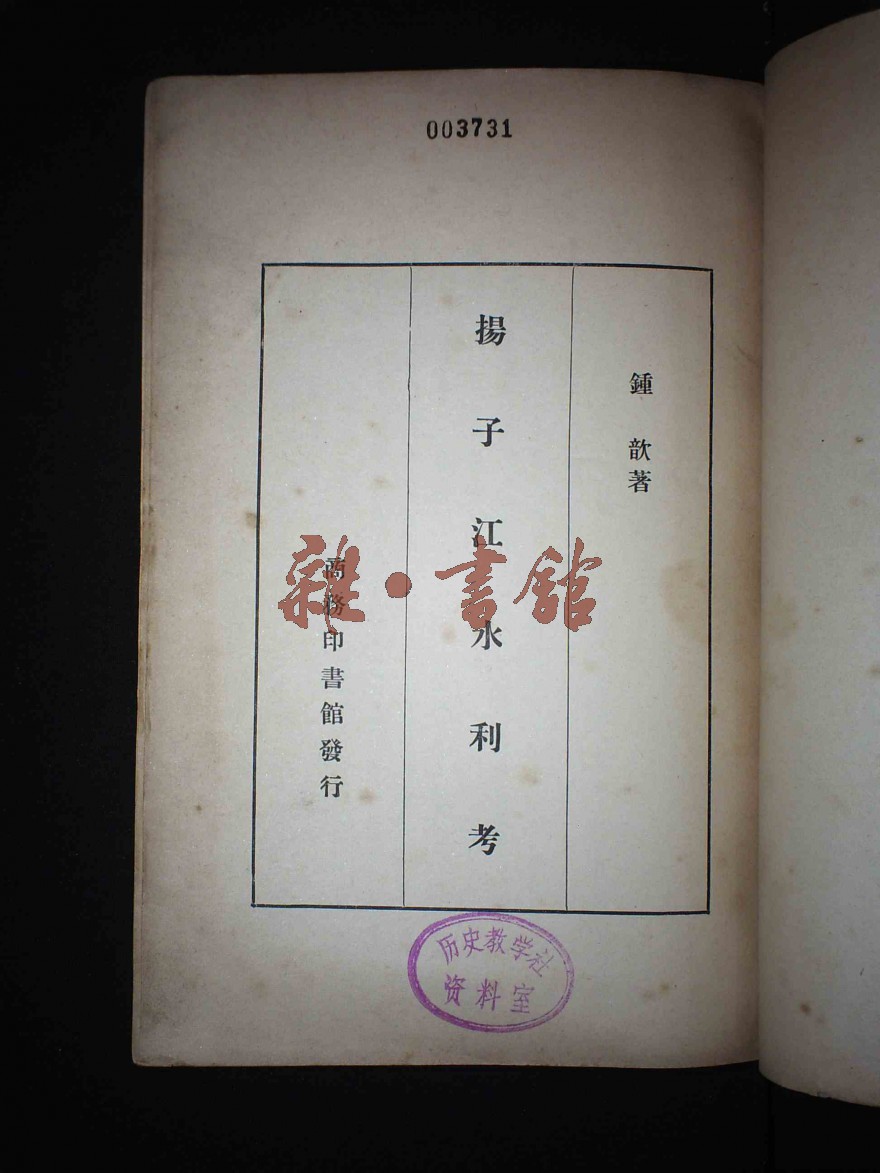 003731
鍾歆著
揚子江水利考
商務印書館發行
雜·書館
历史教学社
资料室